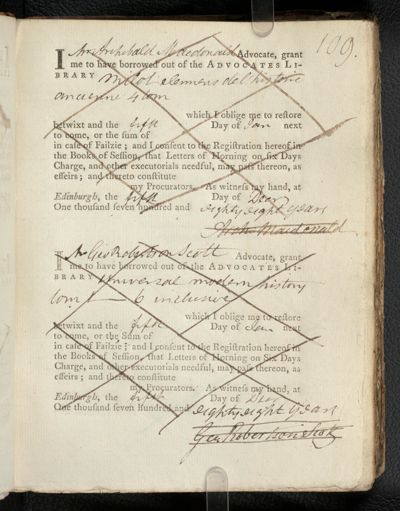 109.
I Mr Archibald Macdonald Advocate, grant
me to have borrowed out of the ADVOCATES LI-
BRARY Millot elemens de l'histoire
ancienne 4 tom
which I oblige me to restore
betwixt and the fifth Day of Jan next
to come, or the sum of
in case of Failzie; and I consent to the Registration hereof in
the Books of Session, that Letters of Horning on six Days
Charge, and other executorials needful, may pass thereon, as
effeirs; and thereto constitute
my Procurators. As witness my hand, at
Edinburgh, the fifth Day of Decr
One thousand seven hundred and eighty eight years
Archd Macdonald
I Mr Geo Robertson Scott Advocate, grant
me to have borrowed out of the ADVOCATES LI-
BRARY Universal modern history
tom 1 – 6 inclusive
which I oblige me to restore
betwixt and the fifth Day of Jan next
to come, or the Sum of
in case of Failzie; and I consent to the Registration hereof in
the Books of Session, that Letters of Horning on Six Days
Charge, and other executorials needful, may pass thereon, as
effeirs; and thereto constitute
my Procurators. As witness my hand, at
Edinburgh, the fifth Day of Decr
One thousand seven hundred and eighty eight years
Geo Robertson Scott